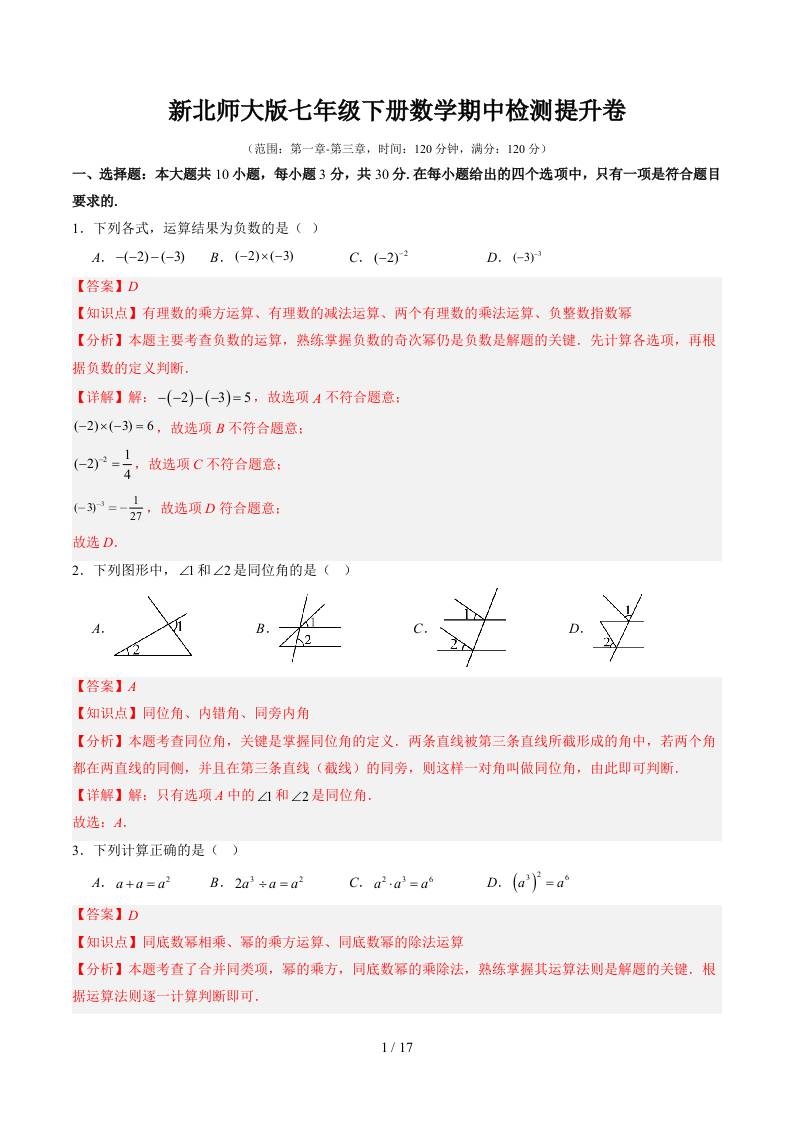 新北师大版七年级下册数学期中检测提升卷
（范围：第一章-第三章，时间：120 分钟，满分：120 分）
一、选择题：本大题共 10 小题，每小题 3 分，共 30 分. 在每小题给出的四个选项中，只有一项是符合题目
要求的.
1．下列各式，运算结果为负数的是（ ）
A．−(−2)−(−3) B．(−2)×(−3) C．(−2)⁻² D．(−3)⁻³
【答案】D
【知识点】有理数的乘方运算、有理数的减法运算、两个有理数的乘法运算、负整数指数幂
【分析】本题主要考查负数的运算，熟练掌握负数的奇次幂仍是负数是解题的关键．先计算各选项，再根
据负数的定义判断．
【详解】解：−(−2)−(−3)=5，故选项 A 不符合题意；
(−2)×(−3)=6，故选项 B 不符合题意；
(−2)⁻²=1/4，故选项 C 不符合题意；
(−3)⁻³=−1/27，故选项 D 符合题意；
故选 D．
2．下列图形中，∠1和∠2是同位角的是（ ）
A． 1 2 B． 1 2 C． 1 2 D． 1 2
【答案】A
【知识点】同位角、内错角、同旁内角
【分析】本题考查同位角，关键是掌握同位角的定义．两条直线被第三条直线所截形成的角中，若两个角
都在两直线的同侧，并且在第三条直线（截线）的同旁，则这样一对角叫做同位角，由此即可判断．
【详解】解：只有选项 A 中的∠1和∠2是同位角．
故选：A．
3．下列计算正确的是（ ）
A．a+a=a² B．2a³÷a=a² C．a²·a³=a⁶ D．(a³)²=a⁶
【答案】D
【知识点】同底数幂相乘、幂的乘方运算、同底数幂的除法运算
【分析】本题考查了合并同类项，幂的乘方，同底数幂的乘除法，熟练掌握其运算法则是解题的关键．根
据运算法则逐一计算判断即可．
1 / 17